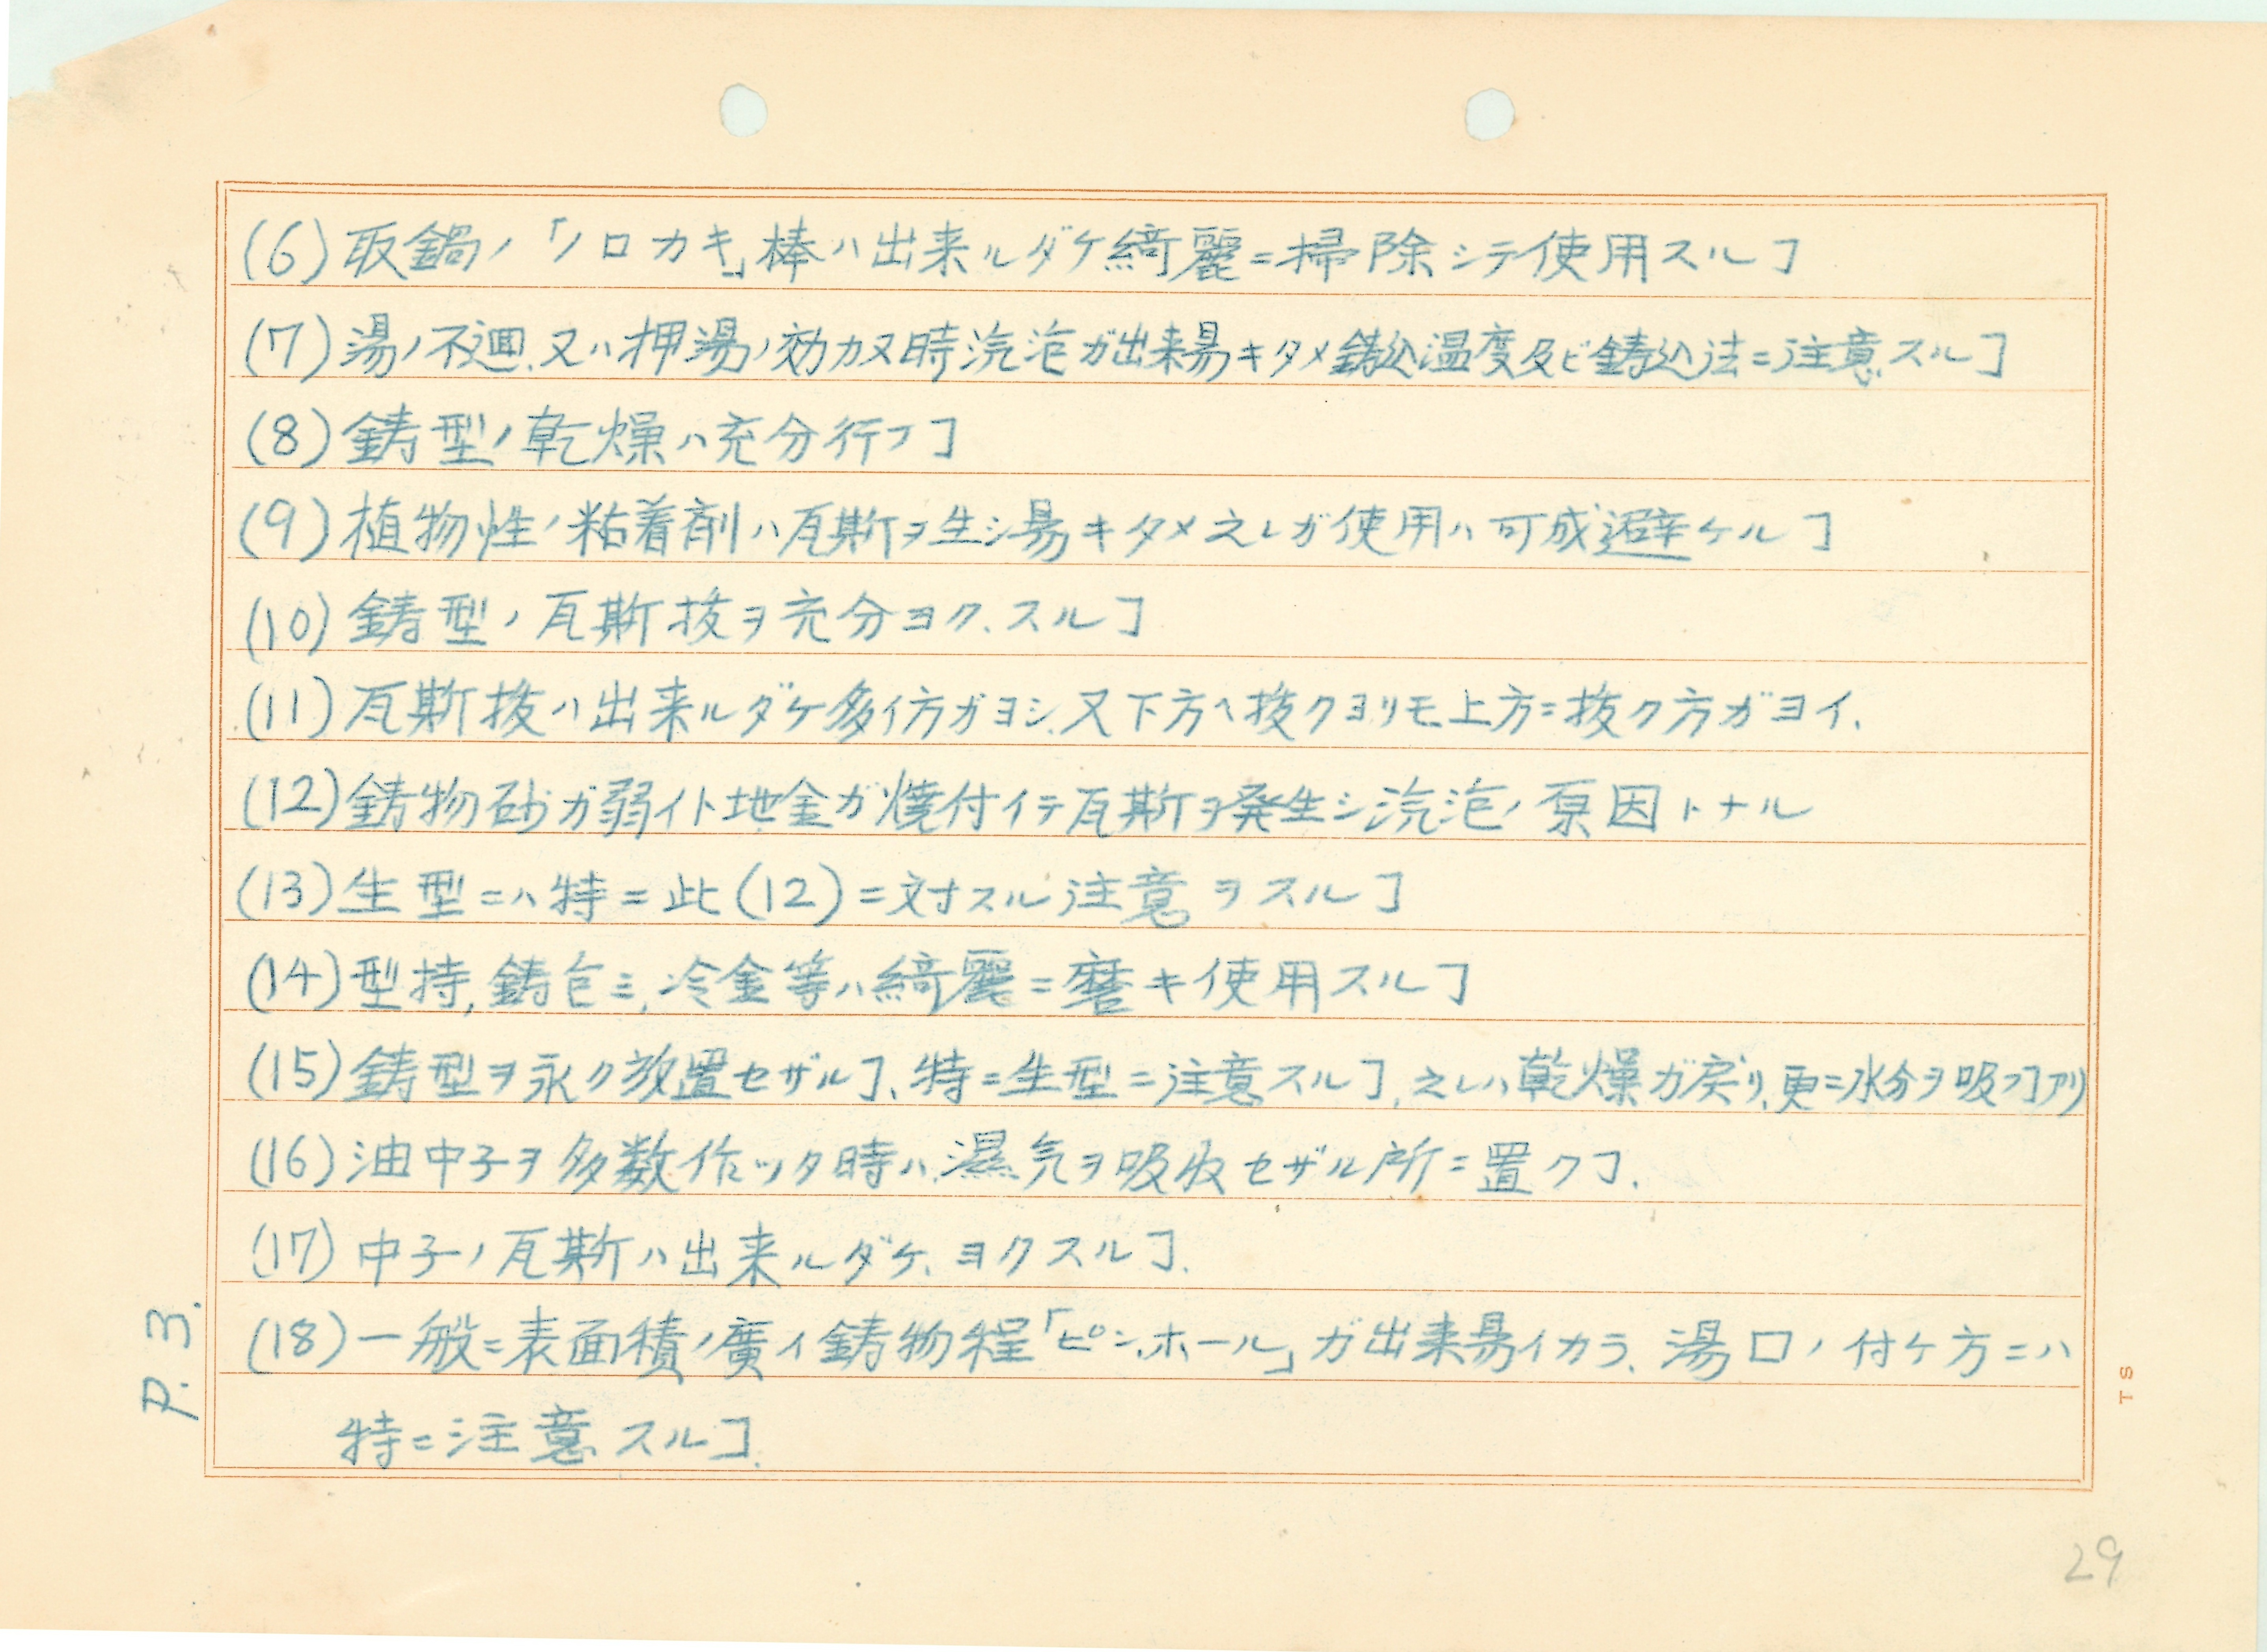 (6)取鍋ノ「ノロカキ」棒ハ出来ルダケ綺麗ニ掃除シテ使用スルヿ
(7)湯ノ不廻、又ハ押湯ノ効カヌ時汽泡ガ出来易キタメ鋳込温度及ビ鋳込法ニ注意スルヿ
(8)鋳型ノ乾燥ハ充分行フヿ
(9)植物性ノ粘着剤ハ瓦斯ヲ生シ易キタメ之レガ使用ハ可成避ケルヿ
(10)鋳型ノ瓦斯抜ヲ充分ヨク、スルヿ
(11)瓦斯抜ハ出来ルダケ多イ方ガヨシ、又下方ヘ抜クヨリモ、上方ニ抜ク方ガヨイ、
(12)鋳物砂ガ弱イト地金ガ焼付イテ瓦斯ヲ発生シ汽泡ノ原因トナル
(13)生型ニハ特ニ此(12)ニ対スル注意ヲスルヿ
(14)型持,鋳包ミ,冷金等ハ綺麗ニ磨キ使用スルヿ
(15)鋳型ヲ永ク放置セザルヿ、特ニ生型ニ注意スルヿ,之レハ乾燥ガ戻リ、更ニ水分ヲ吸フヿアリ
(16)油中子ヲ多数作ッタ時ハ、濕気ヲ吸收セザル所ニ置クヿ.
(17)中子ノ瓦斯ハ出来ルダケ、ヨクスルヿ.
(18)一般ニ表面積ノ廣イ鋳物程「ピンホール」ガ出来易イカラ、湯口ノ付ケ方ニハ
特ニ注意スルヿ.
P.3.
TS
29